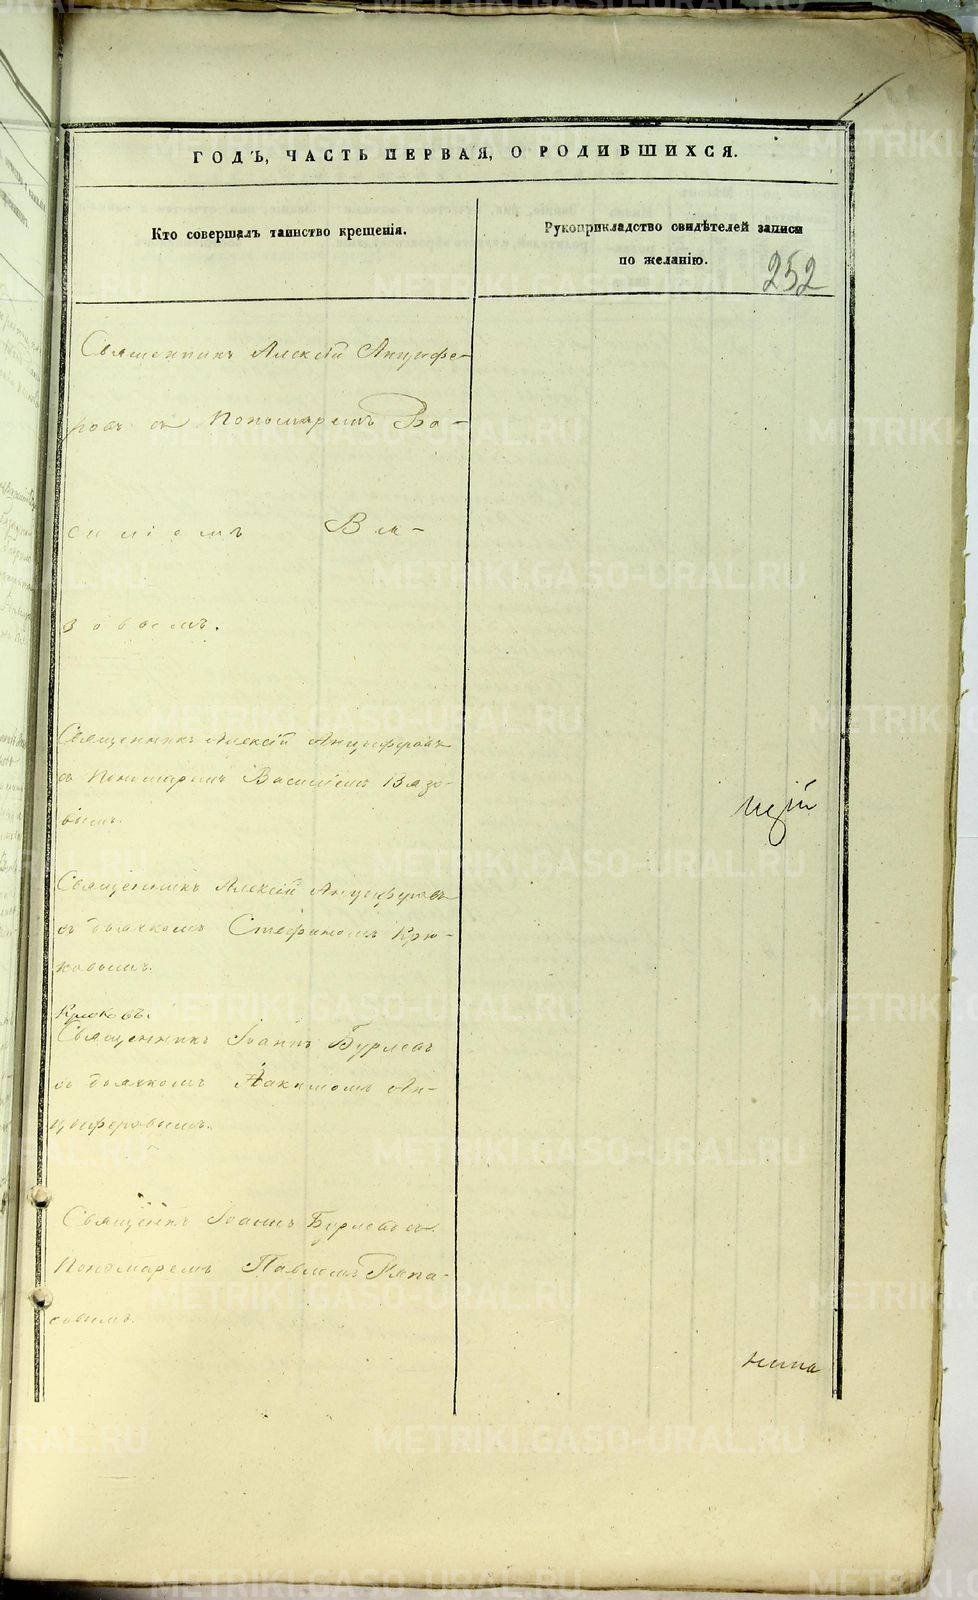 ГОДЪ, ЧАСТЬ ПЕРВАЯ, О РОДИВШИХСЯ.
Кто совершалъ таинство крещенія.
Рукоприкладство свидѣтелей записи
по желанію.
252
Священникъ Алексій Анцыфе-
ровъ съ Пономаремъ Ва-
силіемъ Вя-
зовымъ.
Священникъ Алексій Анцыферовъ
съ Пономаремъ Василіемъ Вязо-
вымъ.
Священникъ Алексій Анцыферовъ
съ дьячкомъ Стефаномъ Крю-
ковымъ.
Крюковъ.
Священникъ Іоаннъ Бурлевъ
съ дьячкомъ Іакимомъ Ан-
цыферовымъ.
Священикъ Іоаннъ Бурлевъ съ
Пономаремъ Павломъ
совымъ.
METRIKI.GASO-URAL.RU